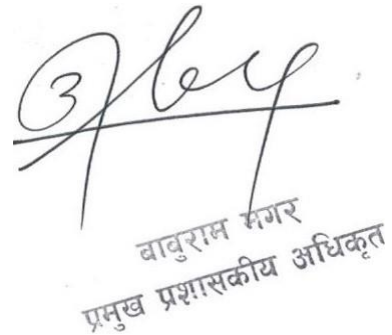 बाबुराम मगर
प्रमुख प्रशासकीय अधिकृत